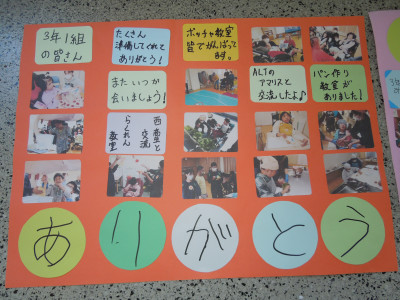 3年1組
の皆さん
たくさん
準備してくれて
ありがとう!
ボッチャ教室
皆でがんばって
ます。
またいつか
会いましょう!
ALTの
アマリスと
交流したよ♪
パン作り
教室が
ありました!
西高生と
交流
教室
あ
り
が
と
う